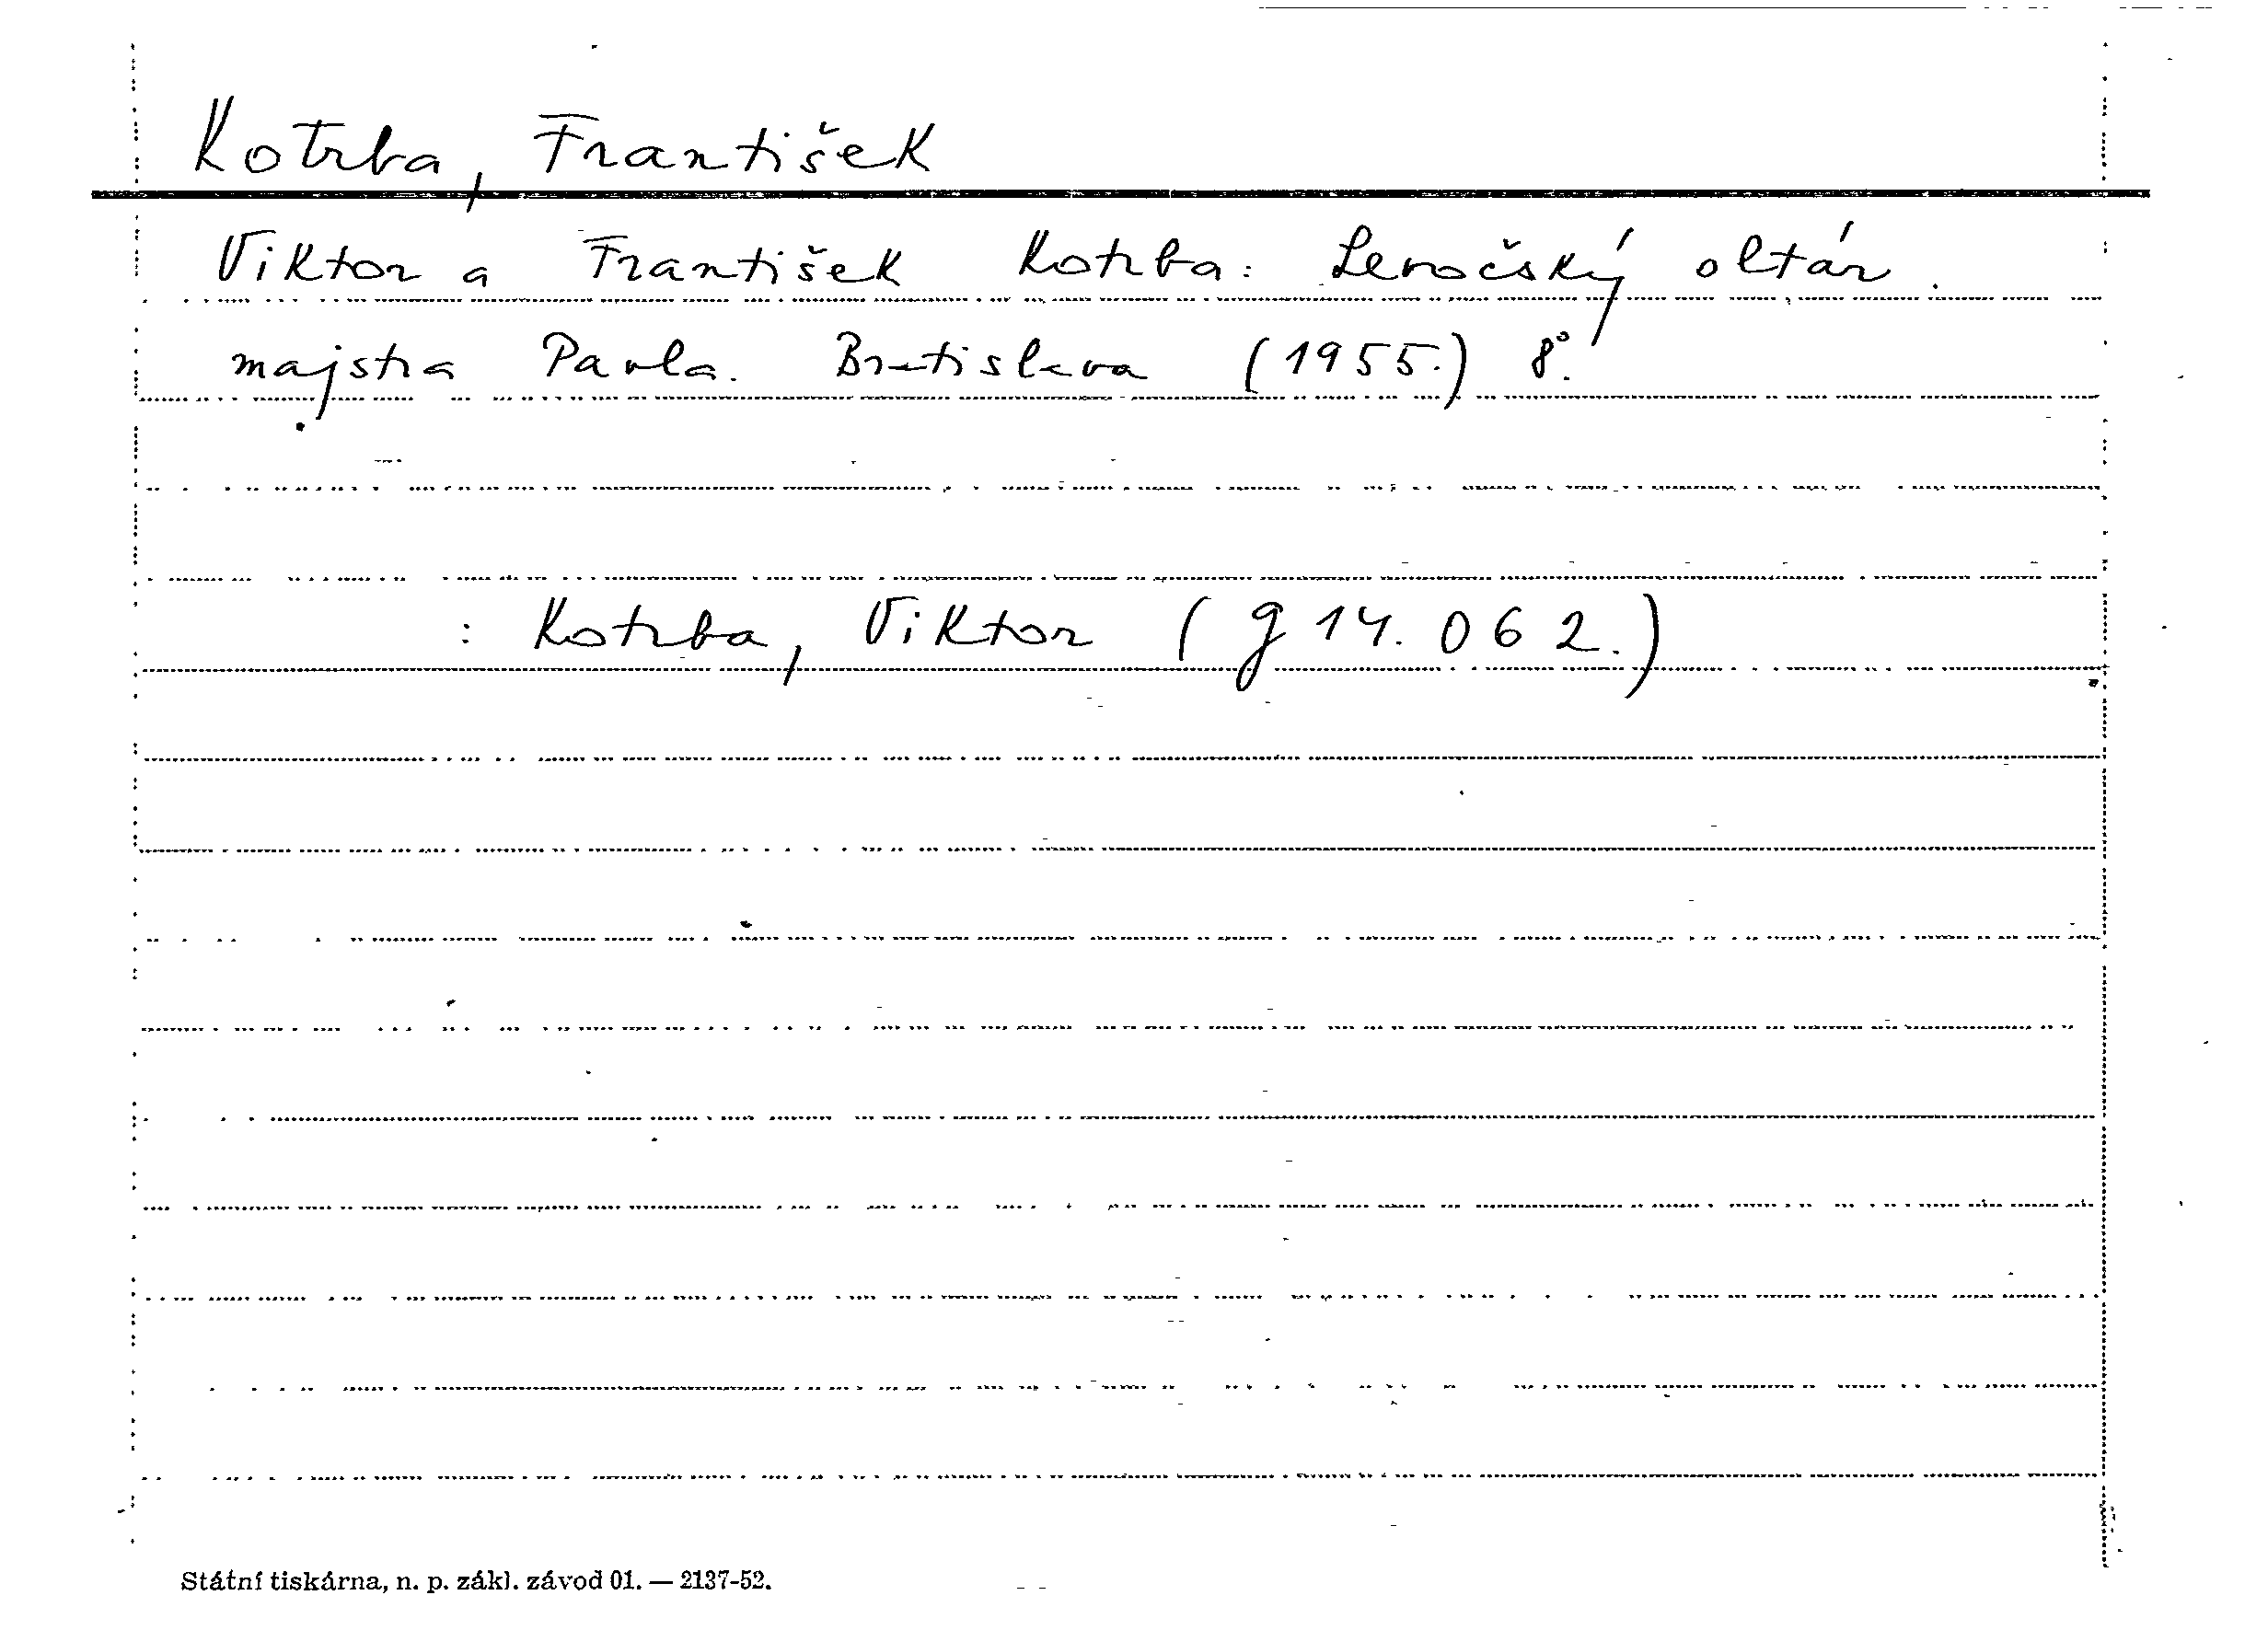 Kotrba, František
Viktor a František Kotrba: Levočský oltár
majstra Pavla. Bratislava (1955.) 8°.
: Kotrba, Viktor (g 14.062.)
Státní tiskárna, n. p. zákl. závod 01. — 2137-52.